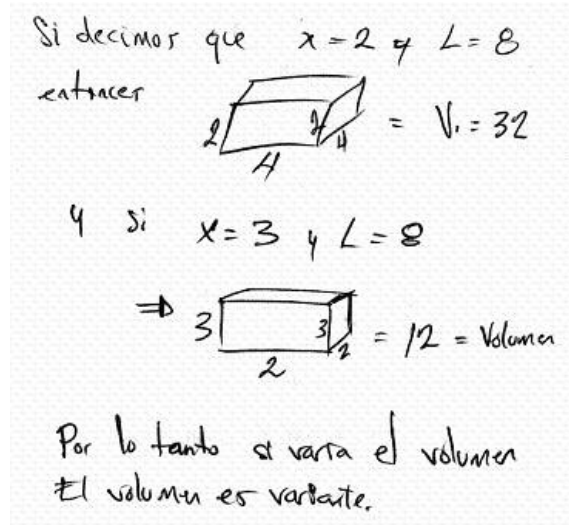 Si decimos que x = 2 y L = 8
entonces
2 4 2 4 = V₁ = 32
y si x = 3 y L = 8
⇒ 3 2 3 2 = 12 = Volumen
Por lo tanto si varia el volumen
El volumen es variante.